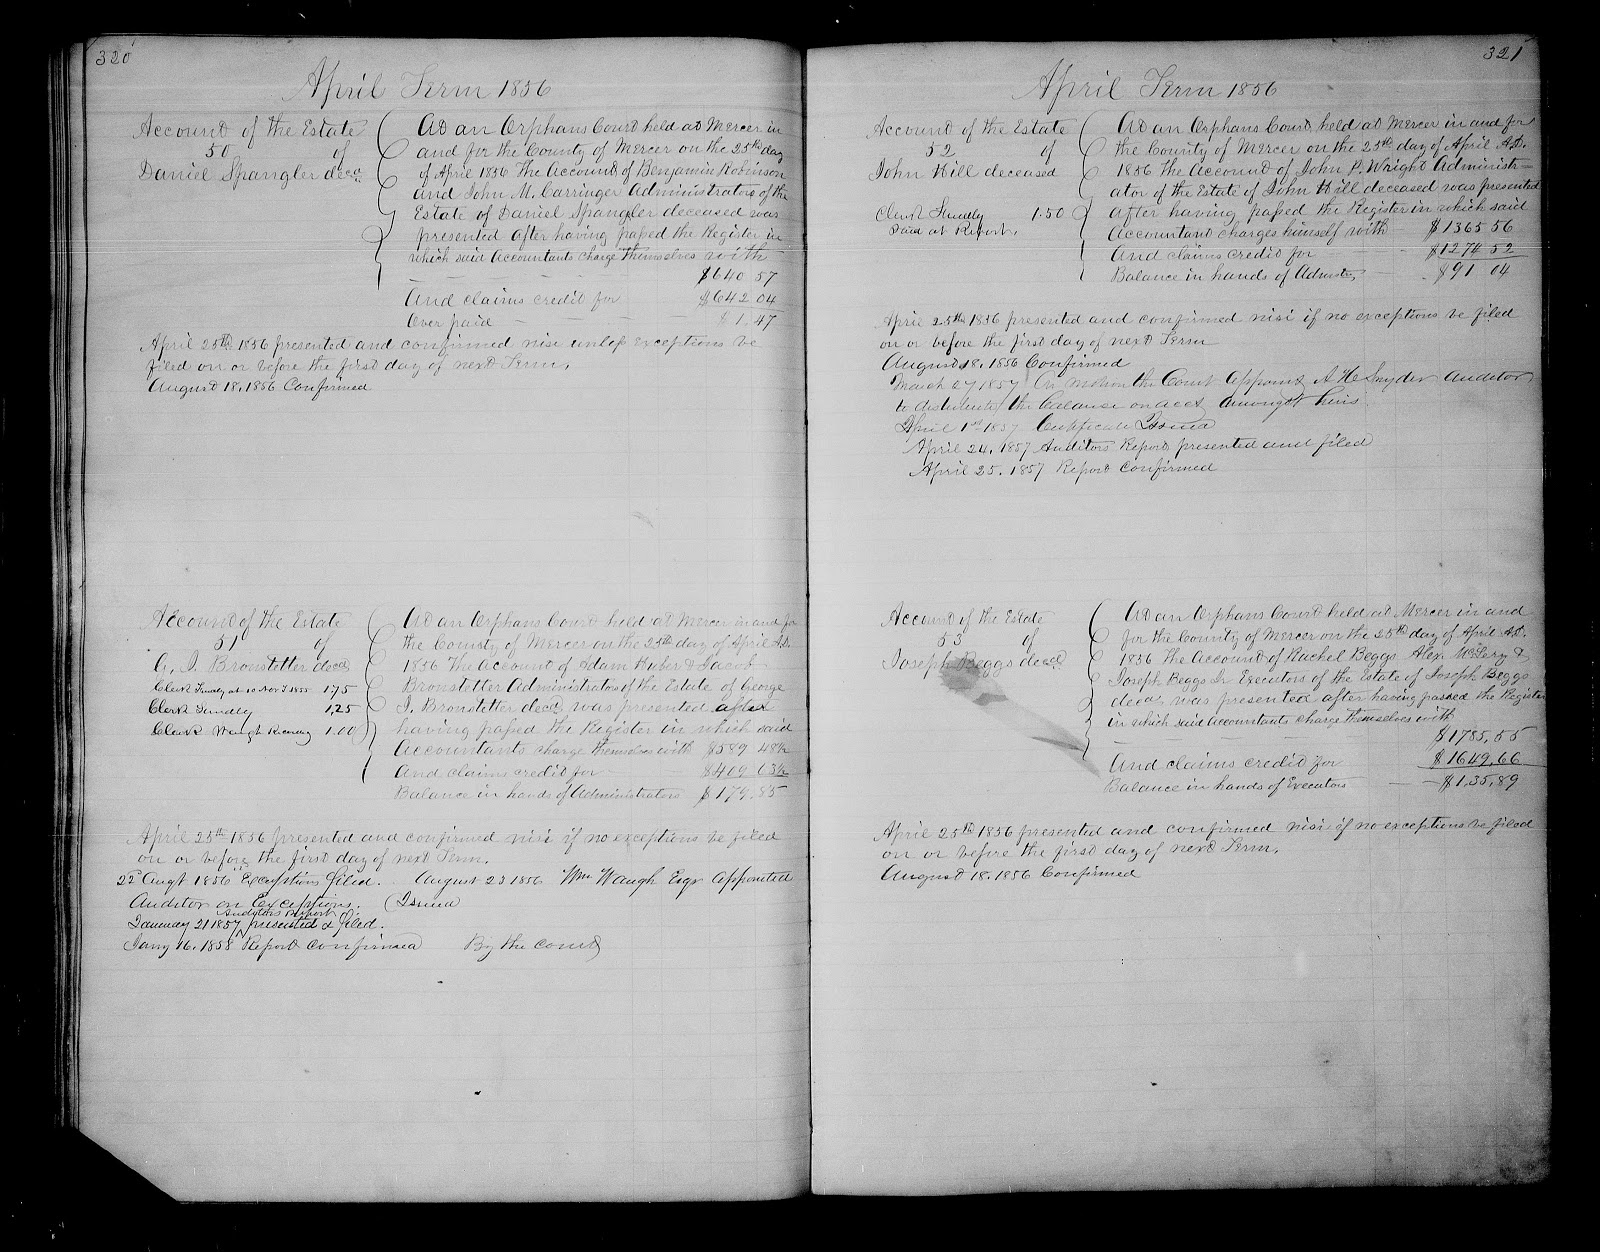 320
April Term 1856
Account of the Estate
50 of
Daniel Spangler decd
At an Orphans Court held at Mercer in
and for the County of Mercer on the 25th day
of April 1856 The Account of Benjamin Robinson
and John M. Carringer Administrators of the
Estate of Daniel Spangler deceased was
presented after having passed the Register in
which said Accountants charge themselves with
$640 57
And claims credit for $642 04
Over paid $1,47
April 25th 1856 presented and confirmed nisi unless exceptions be
filed on or before the first day of next Term.
August 18, 1856 Confirmed
Account of the Estate
51 of
G. J. Bronstetter decd
Clerk Trundly at 10 Nov T 1855 1.75
Clerk Trundly 1,25
Clerk Waugh 1.00
At an Orphans Court held at Mercer in and for
the County of Mercer on the 25th day of April A.D.
1856 The Account of Adam Huber & Jacob
Bronstetter Administrators of the Estate of George
J. Bronstetter decd was presented after
having passed the Register in which said
Accountants charge themselves with $589 48½
And claims credit for $409 63½
Balance in hands of Administrators $179.85
April 25th 1856 presented and confirmed nisi if no exceptions be filed
on or before the first day of next Term.
22d Augt 1856 Exceptions filed. August 23 1856 Wm Waugh Esqr appointed
Auditor on Exceptions. (Issued
January 21 1857 Auditors Report presented & filed.
Jany 16, 1858 Report confirmed By the Court
321
April Term 1856
Account of the Estate
52 of
John Hill deceased
Clerk Trundly 1.50
Paid at Report.
At an Orphans Court held at Mercer in and for
the County of Mercer on the 25th day of April A.D.
1856 The Account of John P. Wright Administr-
ator of the Estate of John Hill deceased was presented
after having passed the Register in which said
Accountant charges himself with $1365 56
And claims credit for $1274 52
Balance in hands of Admistr $91 04
April 25th 1856 presented and confirmed nisi if no exceptions be filed
on or before the first day of next Term
August 18, 1856 Confirmed
March 27 1857 On motion the Court Appoint A H Snyder Auditor
to distribute the balance on acct amongst heirs
April 1st 1857 Certificate Issued
April 24, 1857 Auditors Report presented and filed
April 25, 1857 Report confirmed
Account of the Estate
53 of
Joseph Beggs decd
At an Orphans Court held at Mercer in and
for the County of Mercer on the 25th day of April A.D.
1856 The Account of Rachel Beggs Alex. &
Joseph Beggs Jr Executors of the Estate of Joseph Beggs
decd was presented after having passed the Register
in which said Accountants charge themselves with
$1785,55
And claims credit for $1649,66
Balance in hands of Executors $135,89
April 25th 1856 presented and confirmed nisi if no exceptions be filed
on or before the first day of next Term.
August 18, 1856 Confirmed